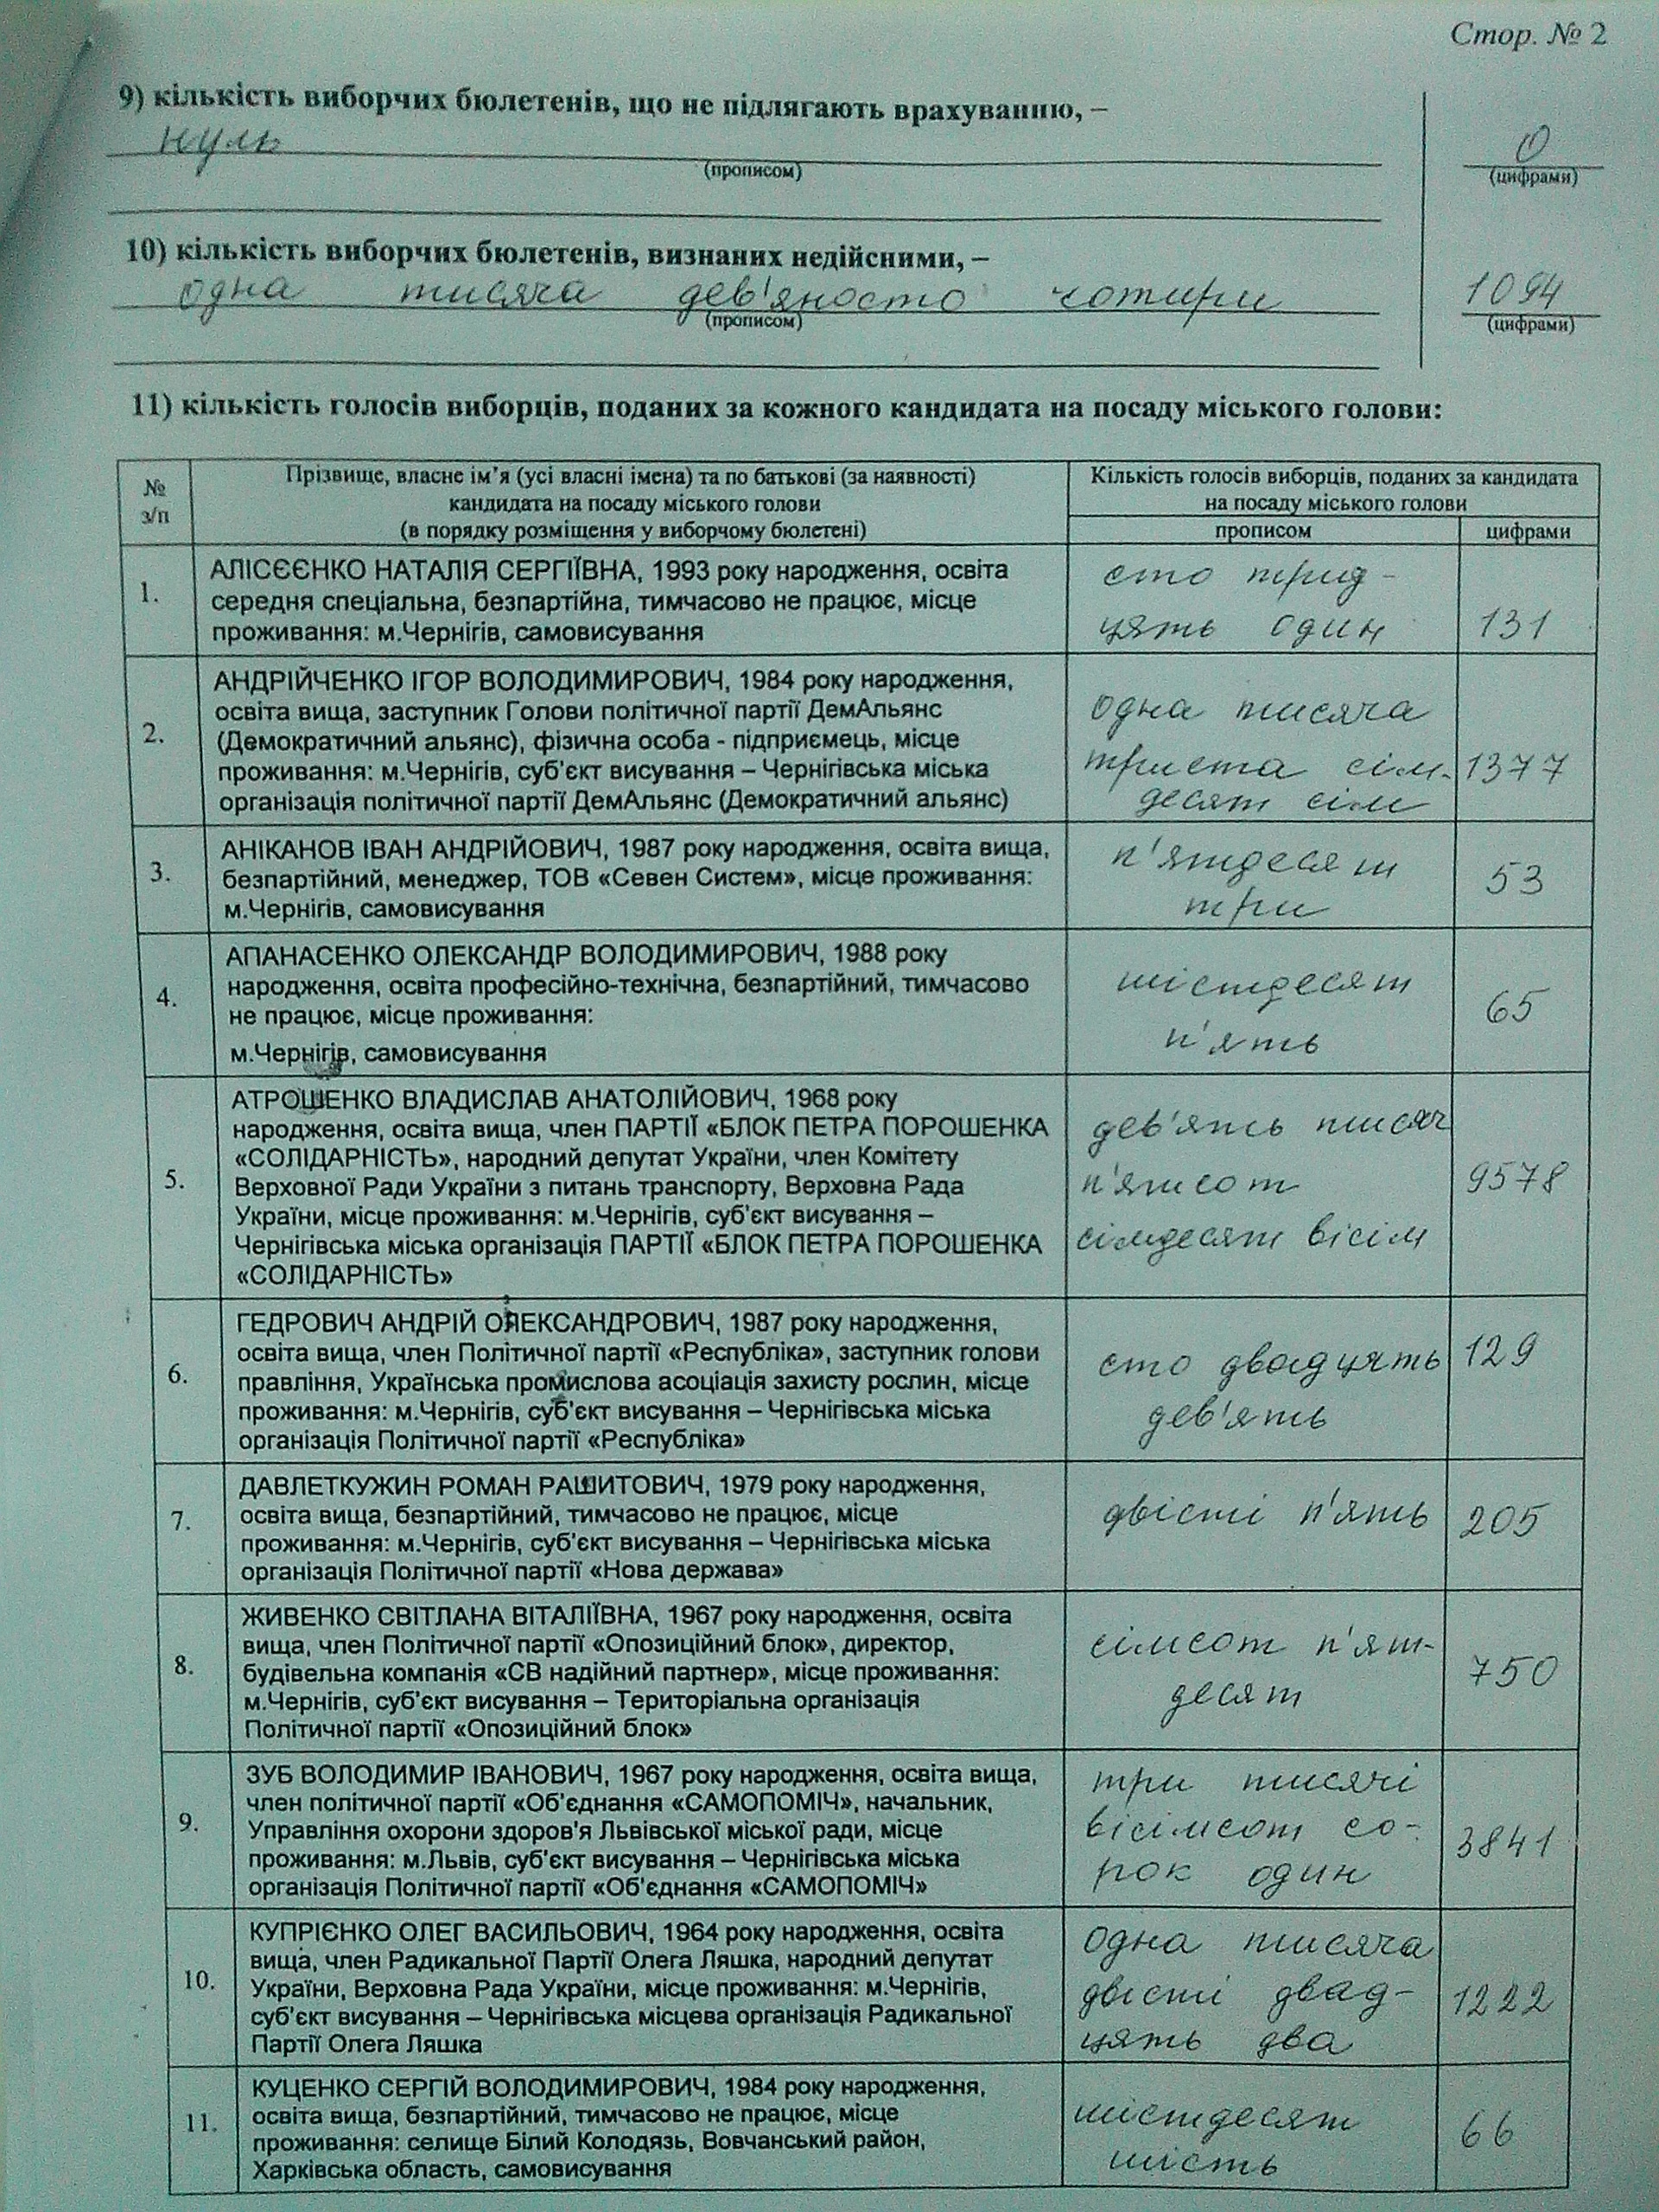 Стор. № 2
9) кількість виборчих бюлетенів, що не підлягають врахуванню, –
нуль
0
(прописом)
(цифрами)
10) кількість виборчих бюлетенів, визнаних недійсними, –
одна тисяча дев'яносто чотири
1094
(прописом)
(цифрами)
11) кількість голосів виборців, поданих за кожного кандидата на посаду міського голови:
№
з/п
Прізвище, власне ім’я (усі власні імена) та по батькові (за наявності)
кандидата на посаду міського голови
(в порядку розміщення у виборчому бюлетені)
Кількість голосів виборців, поданих за кандидата
на посаду міського голови
прописом
цифрами
1.
АЛІСЄЄНКО НАТАЛІЯ СЕРГІЇВНА, 1993 року народження, освіта
середня спеціальна, безпартійна, тимчасово не працює, місце
проживання: м.Чернігів, самовисування
сто трид-
цять один
131
2.
АНДРІЙЧЕНКО ІГОР ВОЛОДИМИРОВИЧ, 1984 року народження,
освіта вища, заступник Голови політичної партії ДемАльянс
(Демократичний альянс), фізична особа - підприємець, місце
проживання: м.Чернігів, суб'єкт висування – Чернігівська міська
організація політичної партії ДемАльянс (Демократичний альянс)
одна тисяча
триста сім-
десят сім
1377
3.
АНІКАНОВ ІВАН АНДРІЙОВИЧ, 1987 року народження, освіта вища,
безпартійний, менеджер, ТОВ «Севен Систем», місце проживання:
м.Чернігів, самовисування
п'ятдесят
три
53
4.
АПАНАСЕНКО ОЛЕКСАНДР ВОЛОДИМИРОВИЧ, 1988 року
народження, освіта професійно-технічна, безпартійний, тимчасово
не працює, місце проживання:
м.Чернігів, самовисування
шістдесят
п'ять
65
5.
АТРОШЕНКО ВЛАДИСЛАВ АНАТОЛІЙОВИЧ, 1968 року
народження, освіта вища, член ПАРТІЇ «БЛОК ПЕТРА ПОРОШЕНКА
«СОЛІДАРНІСТЬ», народний депутат України, член Комітету
Верховної Ради України з питань транспорту, Верховна Рада
України, місце проживання: м.Чернігів, суб'єкт висування –
Чернігівська міська організація ПАРТІЇ «БЛОК ПЕТРА ПОРОШЕНКА
«СОЛІДАРНІСТЬ»
дев'ять тисяч
п'ятсот
сімдесят вісім
9578
6.
ГЕДРОВИЧ АНДРІЙ ОЛЕКСАНДРОВИЧ, 1987 року народження,
освіта вища, член Політичної партії «Республіка», заступник голови
правління, Українська промислова асоціація захисту рослин, місце
проживання: м.Чернігів, суб'єкт висування – Чернігівська міська
організація Політичної партії «Республіка»
сто двадцять
дев'ять
129
7.
ДАВЛЕТКУЖИН РОМАН РАШИТОВИЧ, 1979 року народження,
освіта вища, безпартійний, тимчасово не працює, місце
проживання: м.Чернігів, суб'єкт висування – Чернігівська міська
організація Політичної партії «Нова держава»
двісті п'ять
205
8.
ЖИВЕНКО СВІТЛАНА ВІТАЛІЇВНА, 1967 року народження, освіта
вища, член Політичної партії «Опозиційний блок», директор,
будівельна компанія «СВ надійний партнер», місце проживання:
м.Чернігів, суб'єкт висування – Територіальна організація
Політичної партії «Опозиційний блок»
сімсот п'ят-
десят
750
9.
ЗУБ ВОЛОДИМИР ІВАНОВИЧ, 1967 року народження, освіта вища,
член політичної партії «Об'єднання «САМОПОМІЧ», начальник,
Управління охорони здоров'я Львівської міської ради, місце
проживання: м.Львів, суб'єкт висування – Чернігівська міська
організація Політичної партії «Об'єднання «САМОПОМІЧ»
три тисячі
вісімсот со-
рок один
3841
10.
КУПРІЄНКО ОЛЕГ ВАСИЛЬОВИЧ, 1964 року народження, освіта
вища, член Радикальної Партії Олега Ляшка, народний депутат
України, Верховна Рада України, місце проживання: м.Чернігів,
суб'єкт висування – Чернігівська місцева організація Радикальної
Партії Олега Ляшка
одна тисяча
двісті двад-
цять два
1222
11.
КУЦЕНКО СЕРГІЙ ВОЛОДИМИРОВИЧ, 1984 року народження,
освіта вища, безпартійний, тимчасово не працює, місце
проживання: селище Білий Колодязь, Вовчанський район,
Харківська область, самовисування
шістдесят
шість
66